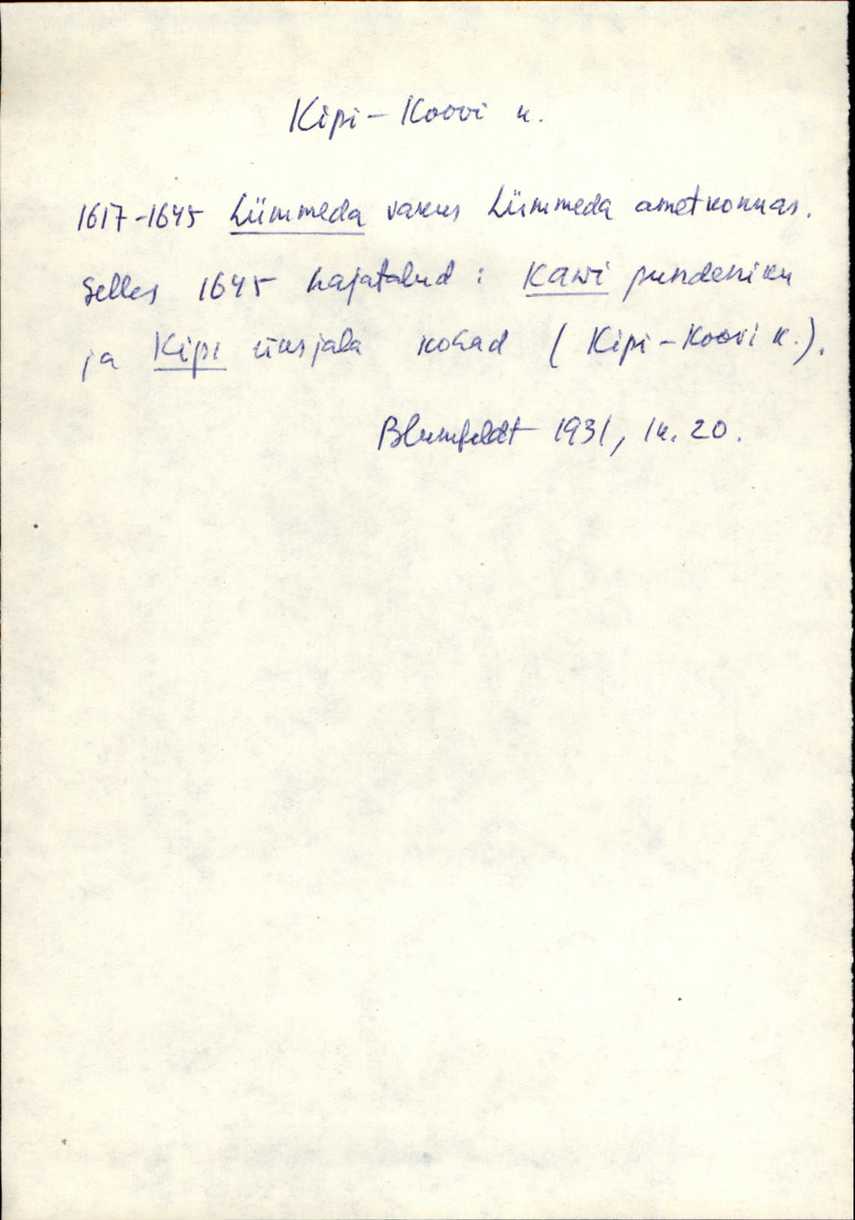 Kipi-Koovi k.
1617-1645 Lümmeda vakus Lümmeda ametkonnas.
Selles 1645 hajatalud: Kawi pundeniku
ja Kipi üksjala kohad (Kipi-Koovi k.).
Blumfeldt 1931, lk. 20.